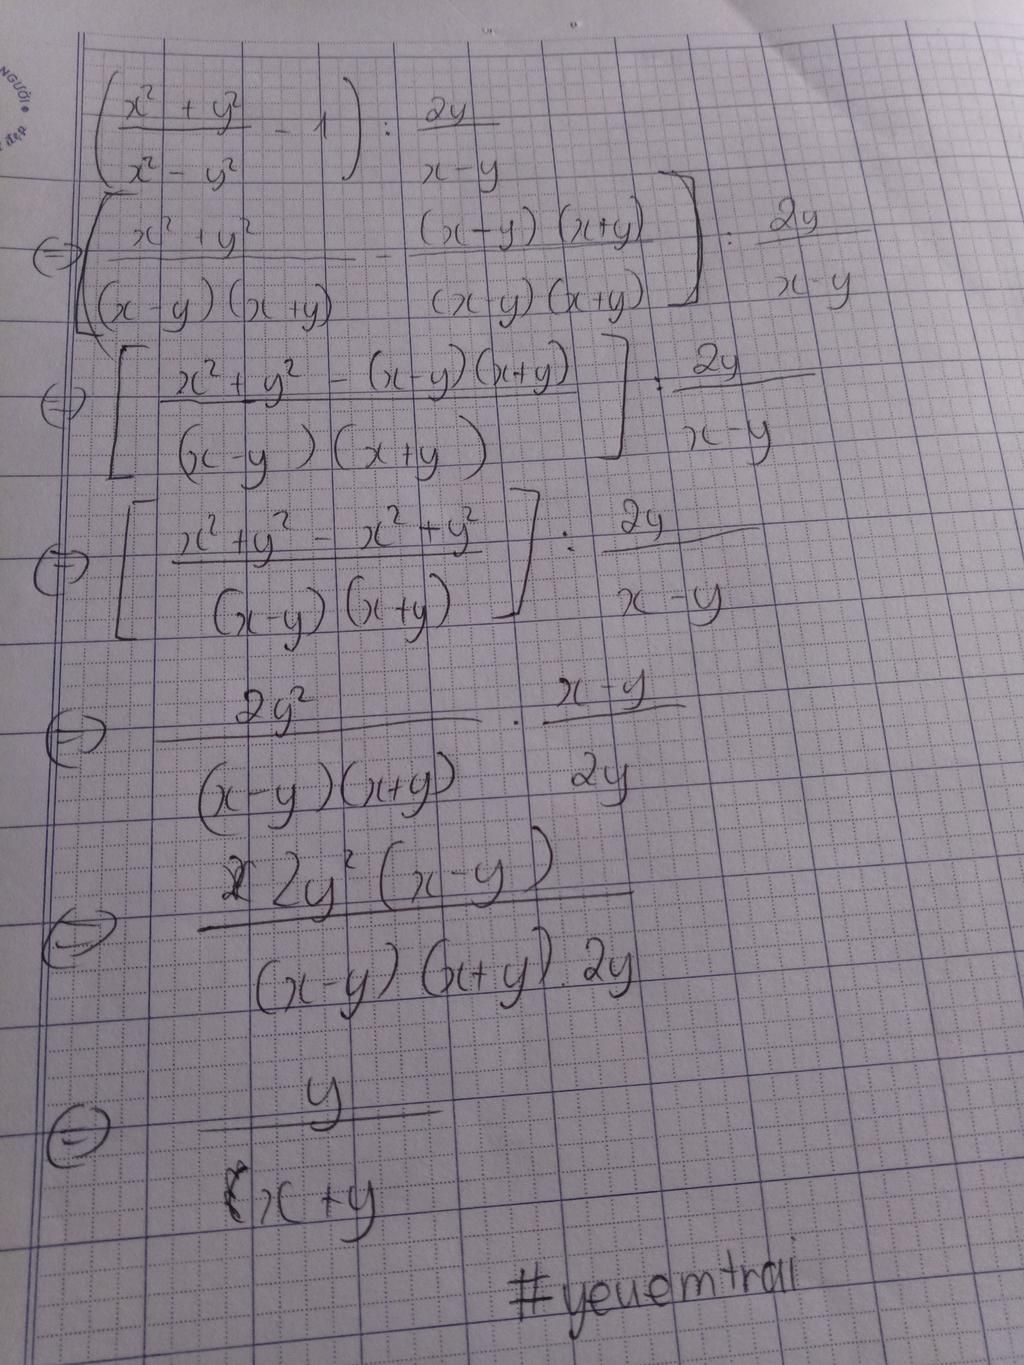 NGƯỜI
đẹp
(x² + y² / x² - y² - 1) : 2y / x - y
⇔ [x² + y² / (x - y)(x + y) - (x - y)(x + y) / (x - y)(x + y)] : 2y / x - y
⇔ [x² + y² - (x - y)(x + y) / (x - y)(x + y)] : 2y / x - y
⇔ [x² + y² - x² + y² / (x - y)(x + y)] : 2y / x - y
⇔ 2y² / (x - y)(x + y) . x - y / 2y
⇔ 2y²(x - y) / (x - y)(x + y) . 2y
⇔ y / x + y
#yeuemtrai